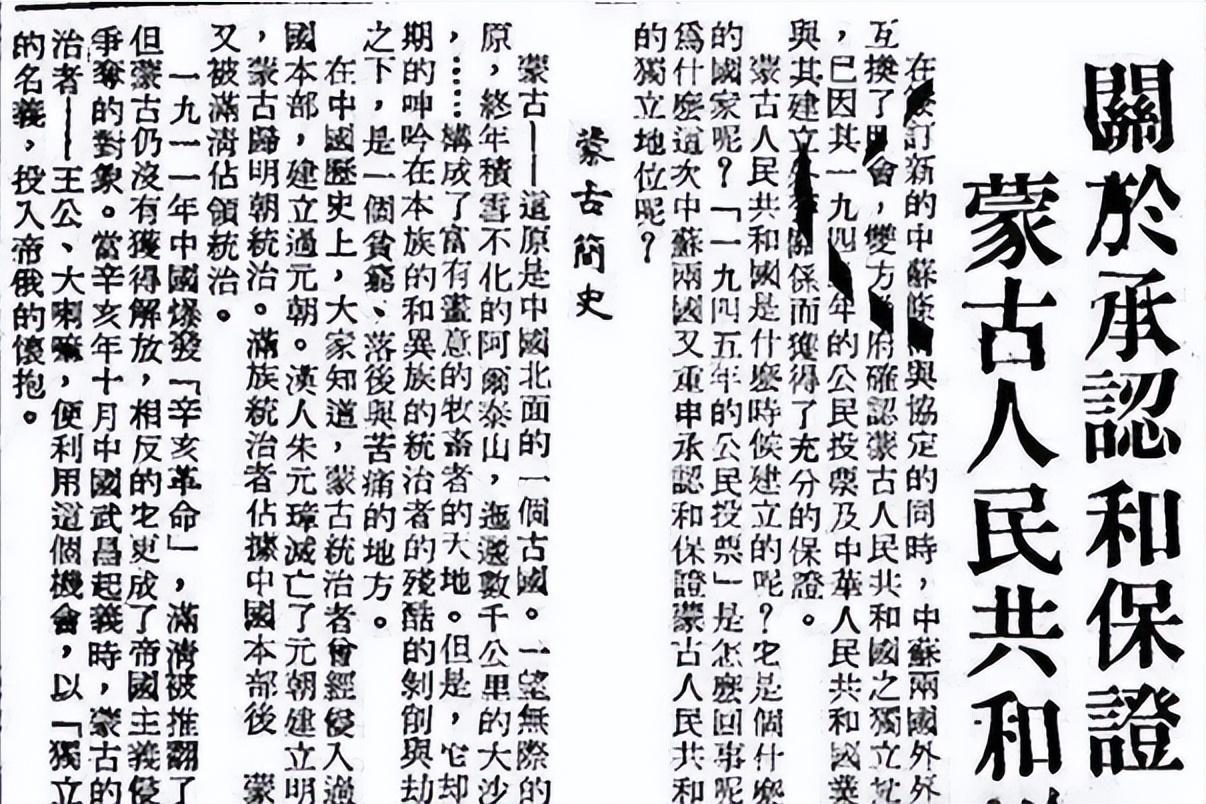 關於承認和保證
蒙古人民共和
在簽訂新的中蘇條約與協定的同時,中蘇兩國外
互換了照會,雙方政府確認蒙古人民共和國之獨立
,已因其一九四五年的公民投票及中華人民共和國業
與其建立外交關係而獲得了充分的保證。
蒙古人民共和國是什麼時候建立的呢?它是個什麼
的國家呢?「一九四五年的公民投票」是怎麼回事呢
爲什麼這次中蘇兩國又重申承認和保證蒙古人民共和
的獨立地位呢?
蒙古簡史
蒙古——這原是中國北面的一個古國。一望無際的
原,終年積雪不化的阿爾泰山,迤邐數千公里的大沙
,……構成了富有畫意的牧畜者的大地。但是,它却
期的呻吟在本族的和異族的統治者的殘酷的剝削與劫
之下,是一個貧窮、落後與苦痛的地方。
在中國歷史上,大家知道,蒙古統治者曾經侵入過
國本部,建立過元朝。漢人朱元璋滅亡了元朝建立明
,蒙古歸明朝統治。滿族統治者佔據中國本部後 蒙
又被滿清佔領統治。
一九一一年中國爆發「辛亥革命」,滿清被推翻了
但蒙古仍沒有獲得解放,相反的它更成了帝國主義侵
爭奪的對象。當辛亥年十月中國武昌起義時,蒙古的
治者——王公、大喇嘛,便利用這個機會,以「獨立
的名義,投入帝俄的懷抱。